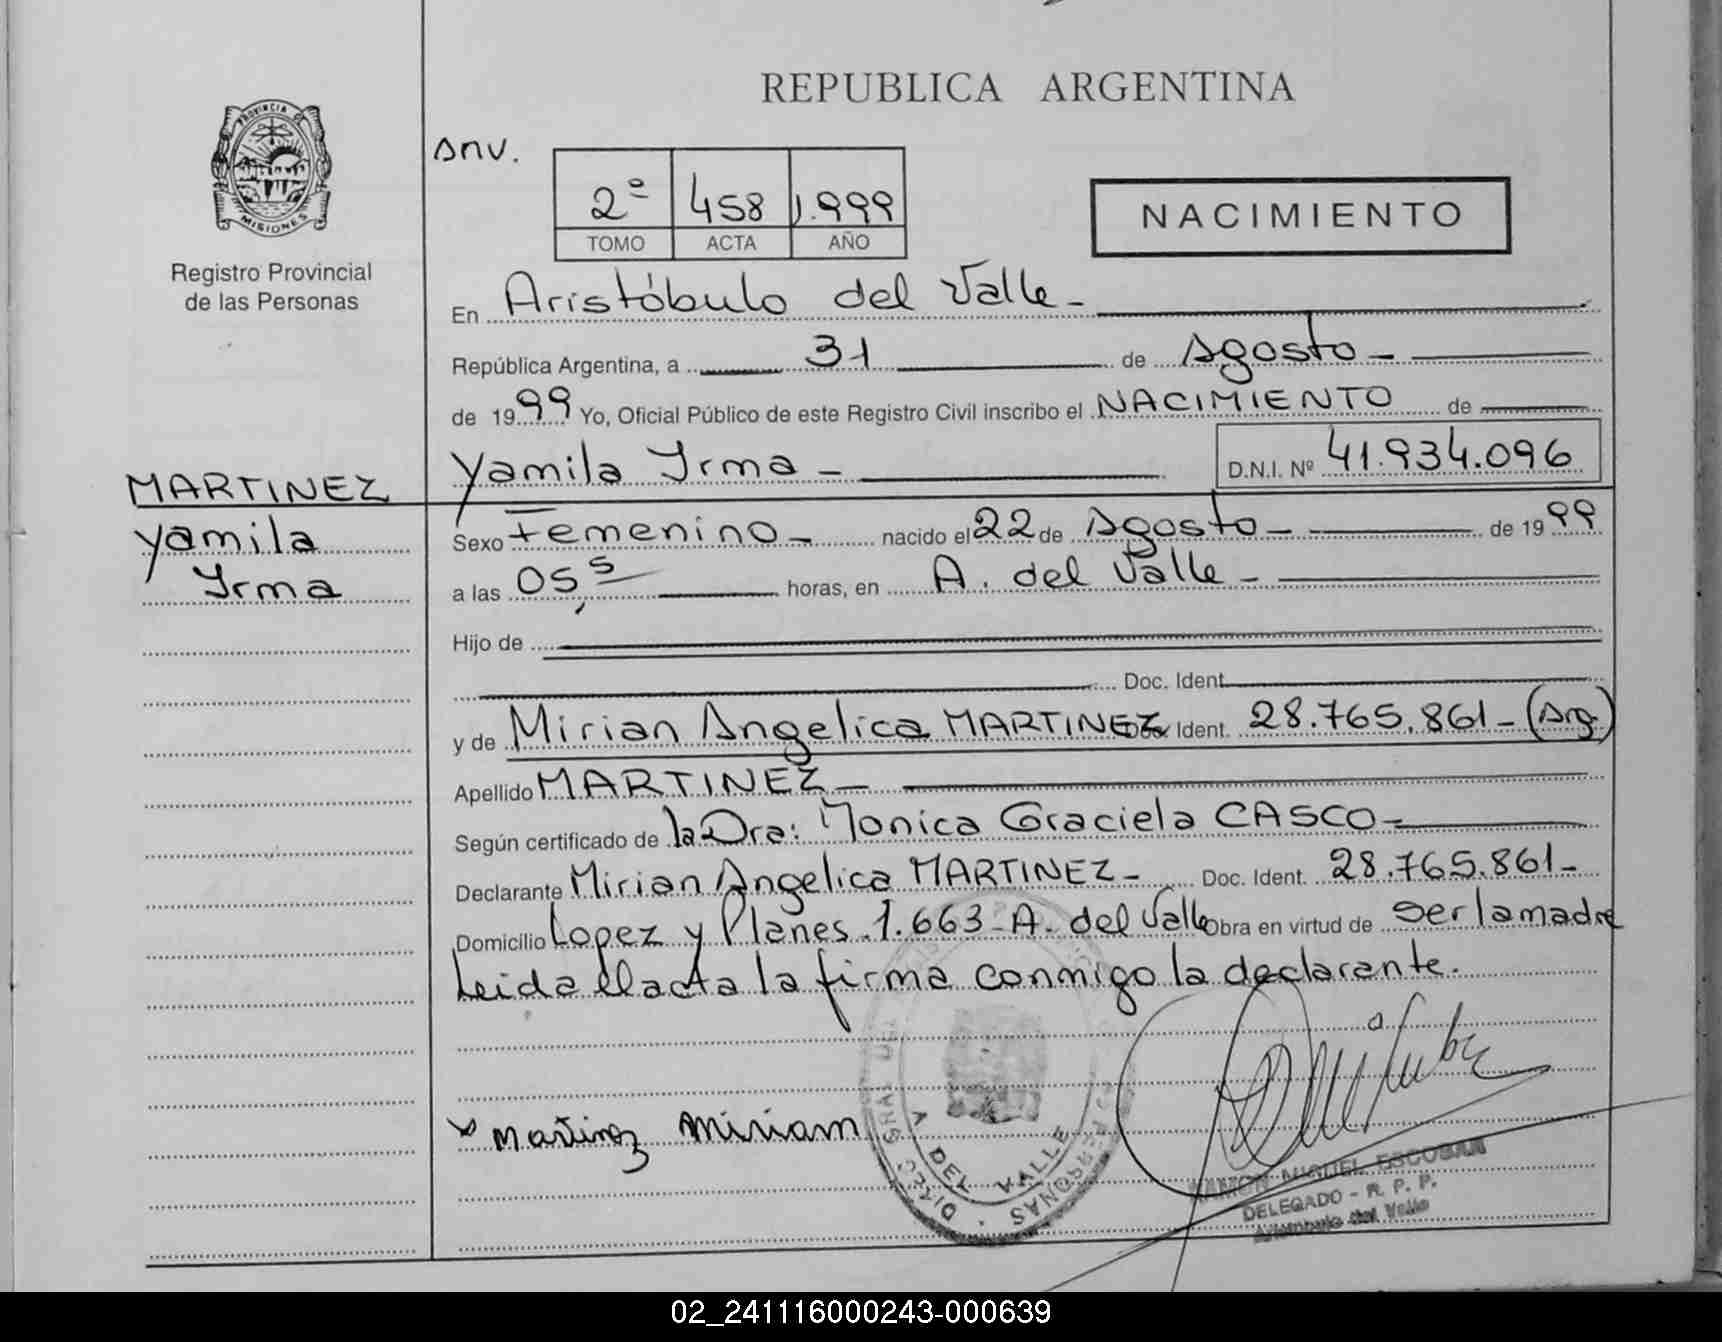 REPUBLICA ARGENTINA
PROVINCIA DE
MISIONES
Registro Provincial
de las Personas
Anv.
2º 458 1.999
TOMO ACTA AÑO
NACIMIENTO
En Aristóbulo del Valle -
República Argentina, a 31 de Agosto -
de 1999 Yo, Oficial Público de este Registro Civil inscribo el NACIMIENTO de
Yamila Yrma - D.N.I. Nº 41.934.096
MARTINEZ
Yamila
Yrma
Sexo Femenino - nacido el 22 de Agosto - de 1999
a las 05,5 horas, en A. del Valle -
Hijo de
Doc. Ident.
y de Mirian Angelica MARTINEZ Doc. Ident. 28.765.861 - (Arg.)
Apellido MARTINEZ -
Según certificado de la Dra: Monica Graciela CASCO -
Declarante Mirian Angelica MARTINEZ - Doc. Ident. 28.765.861 -
Domicilio Lopez y Planes 1.663 - A. del Valle Obra en virtud de ser la madre
Leida el acta la firma conmigo la declarante.
Martinez Miriam
A DEL VALLE
PERSONAS
RAMON MIGUEL ESCOBAR
DELEGADO - R. P. P.
Aristobulo del Valle
02_241116000243-000639